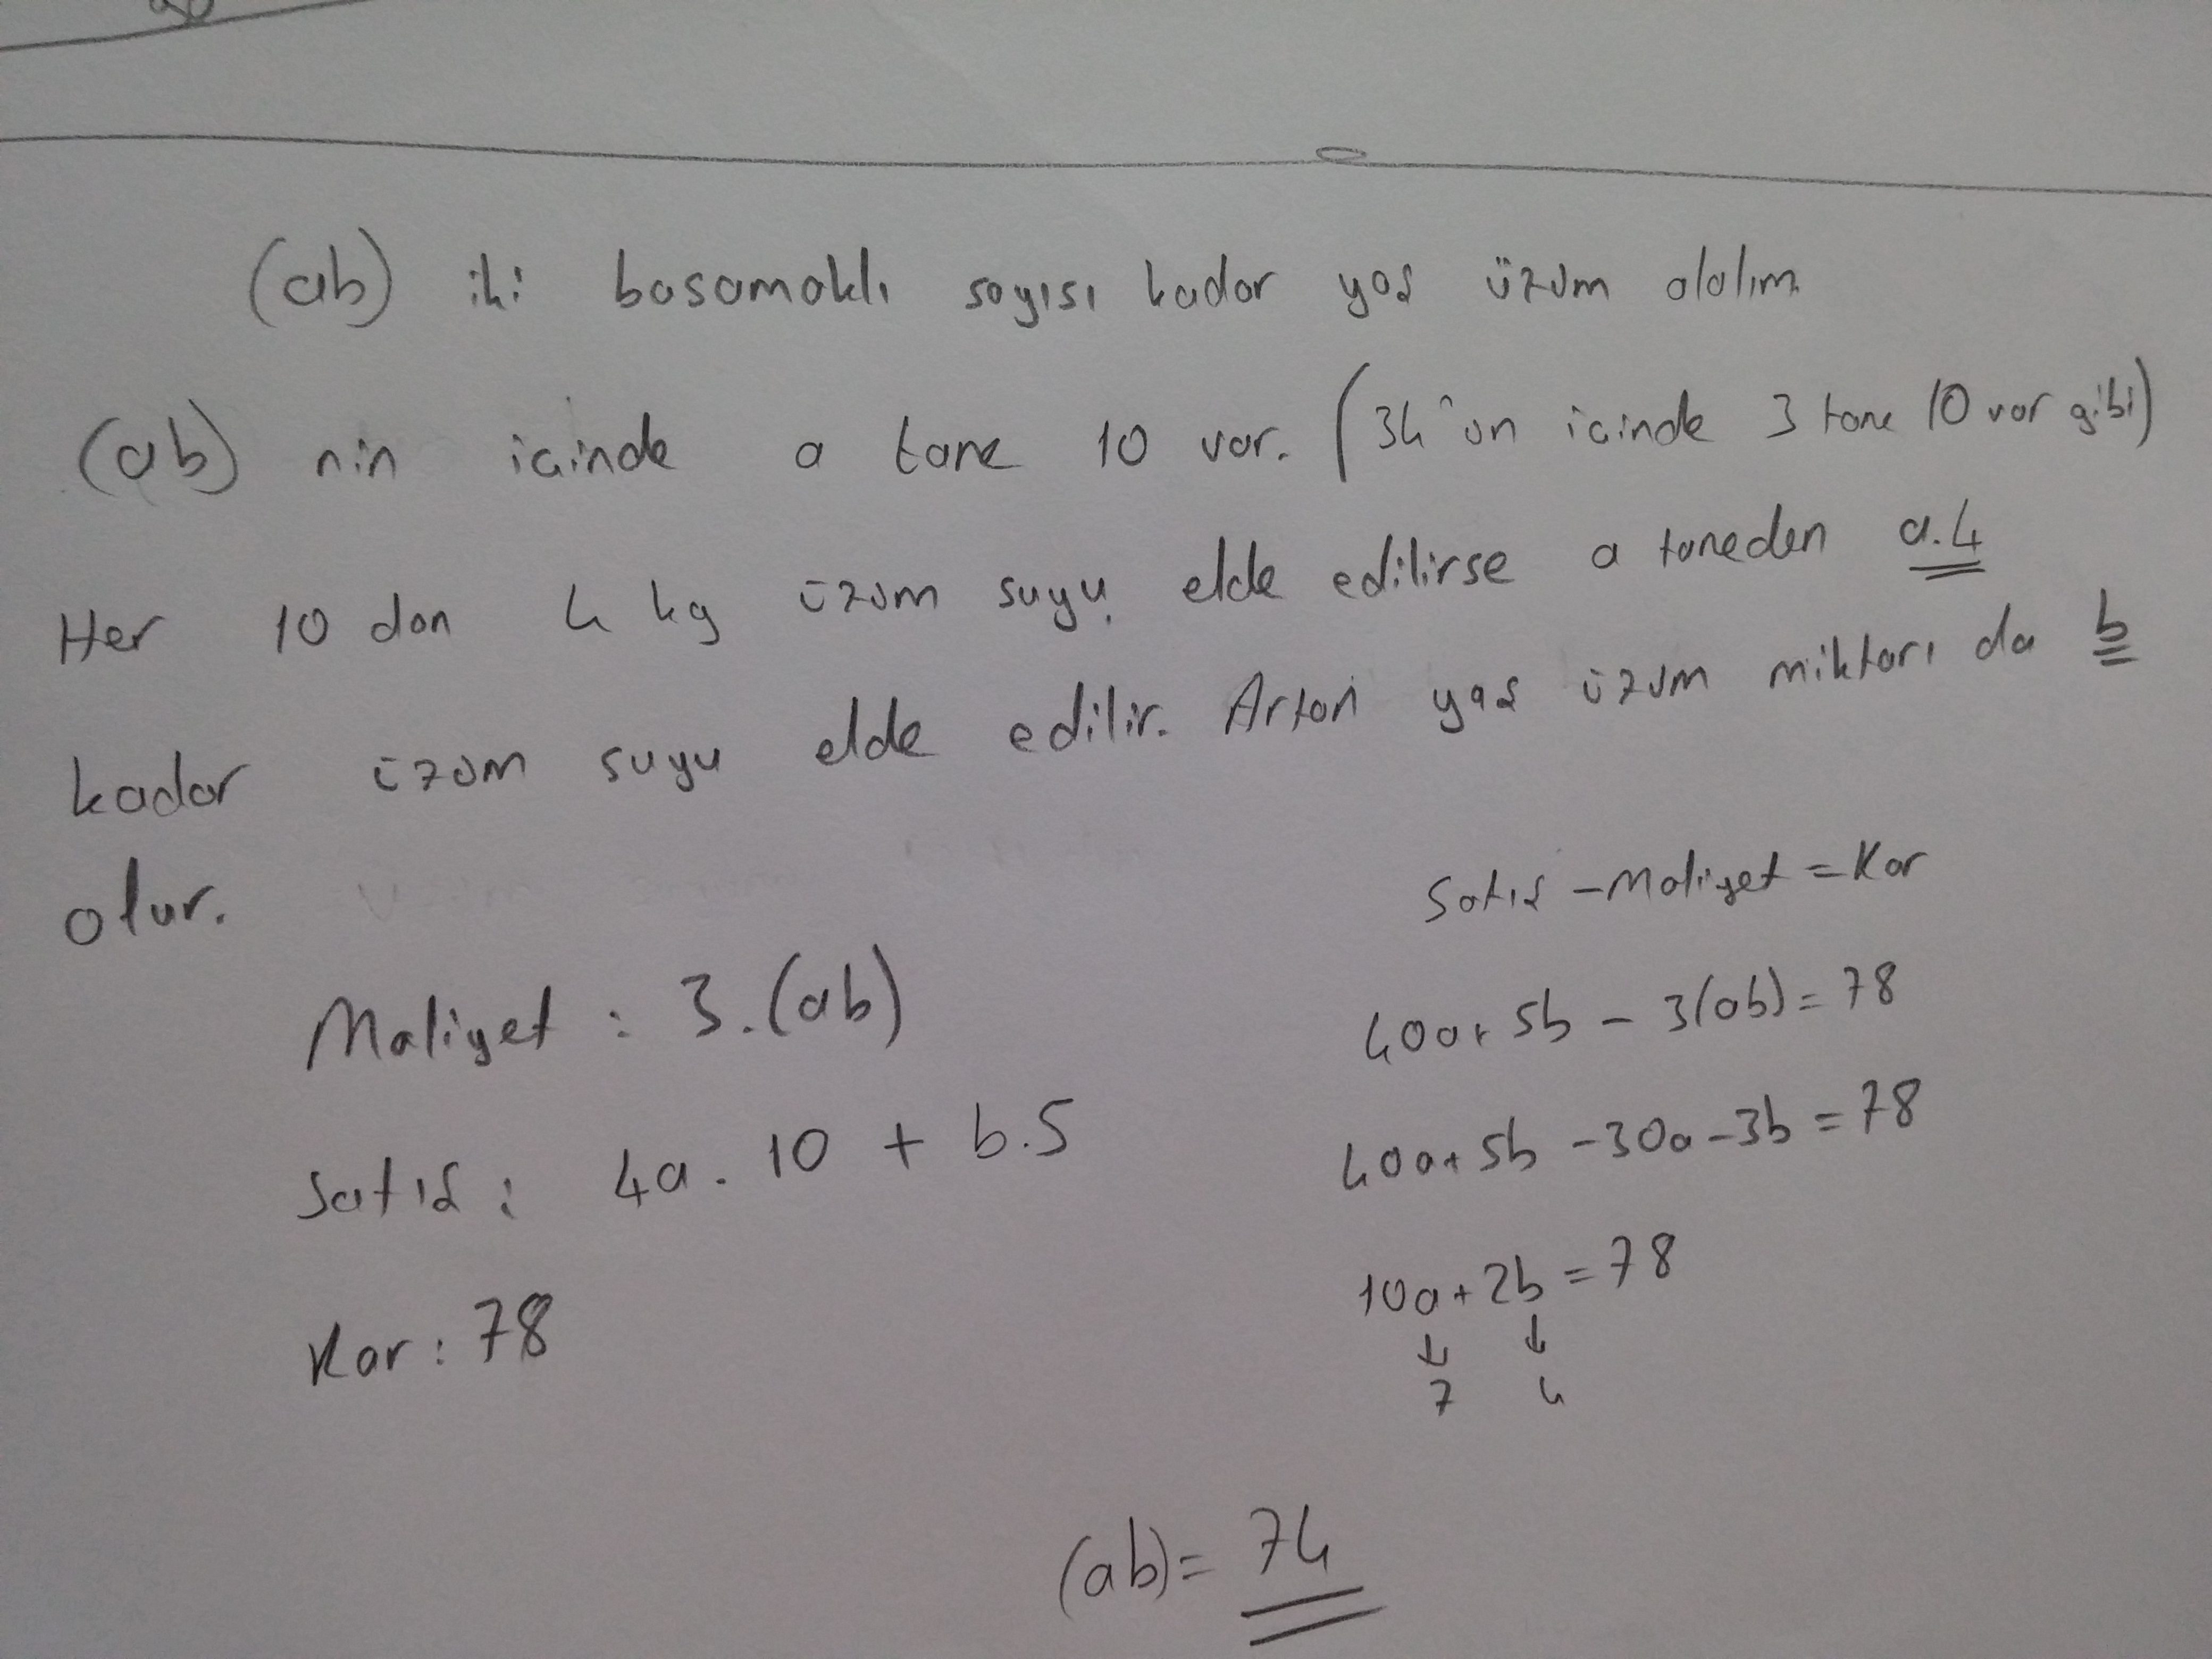 (ab) iki basamaklı sayısı kadar yaş üzüm alalım.
(ab) nin içinde a tane 10 var. (34'ün içinde 3 tane 10 var gibi)
Her 10 dan 4 kg üzüm suyu elde edilirse a taneden a.4
kadar üzüm suyu elde edilir. Artan yaş üzüm miktarı da b
olur.
Maliyet : 3.(ab)
Satış : 4a . 10 + b.5
Kar : 78
Satış - Maliyet = Kar
40a + 5b - 3(ab) = 78
40a + 5b - 30a - 3b = 78
10a + 2b = 78
↓ ↓
7 4
(ab) = 74